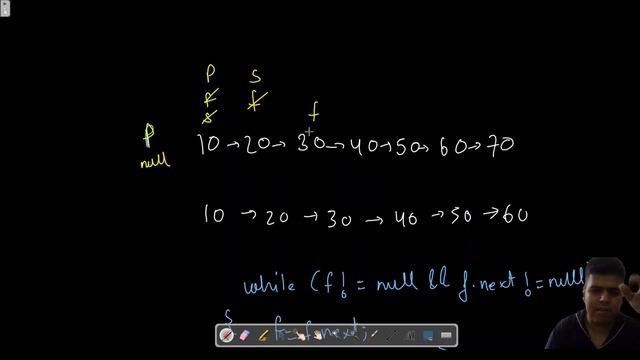 P S
f f f
s
p 10 → 20 → 30 → 40 → 50 → 60 → 70
null
10 → 20 → 30 → 40 → 50 → 60
while (f != null && f.next != null